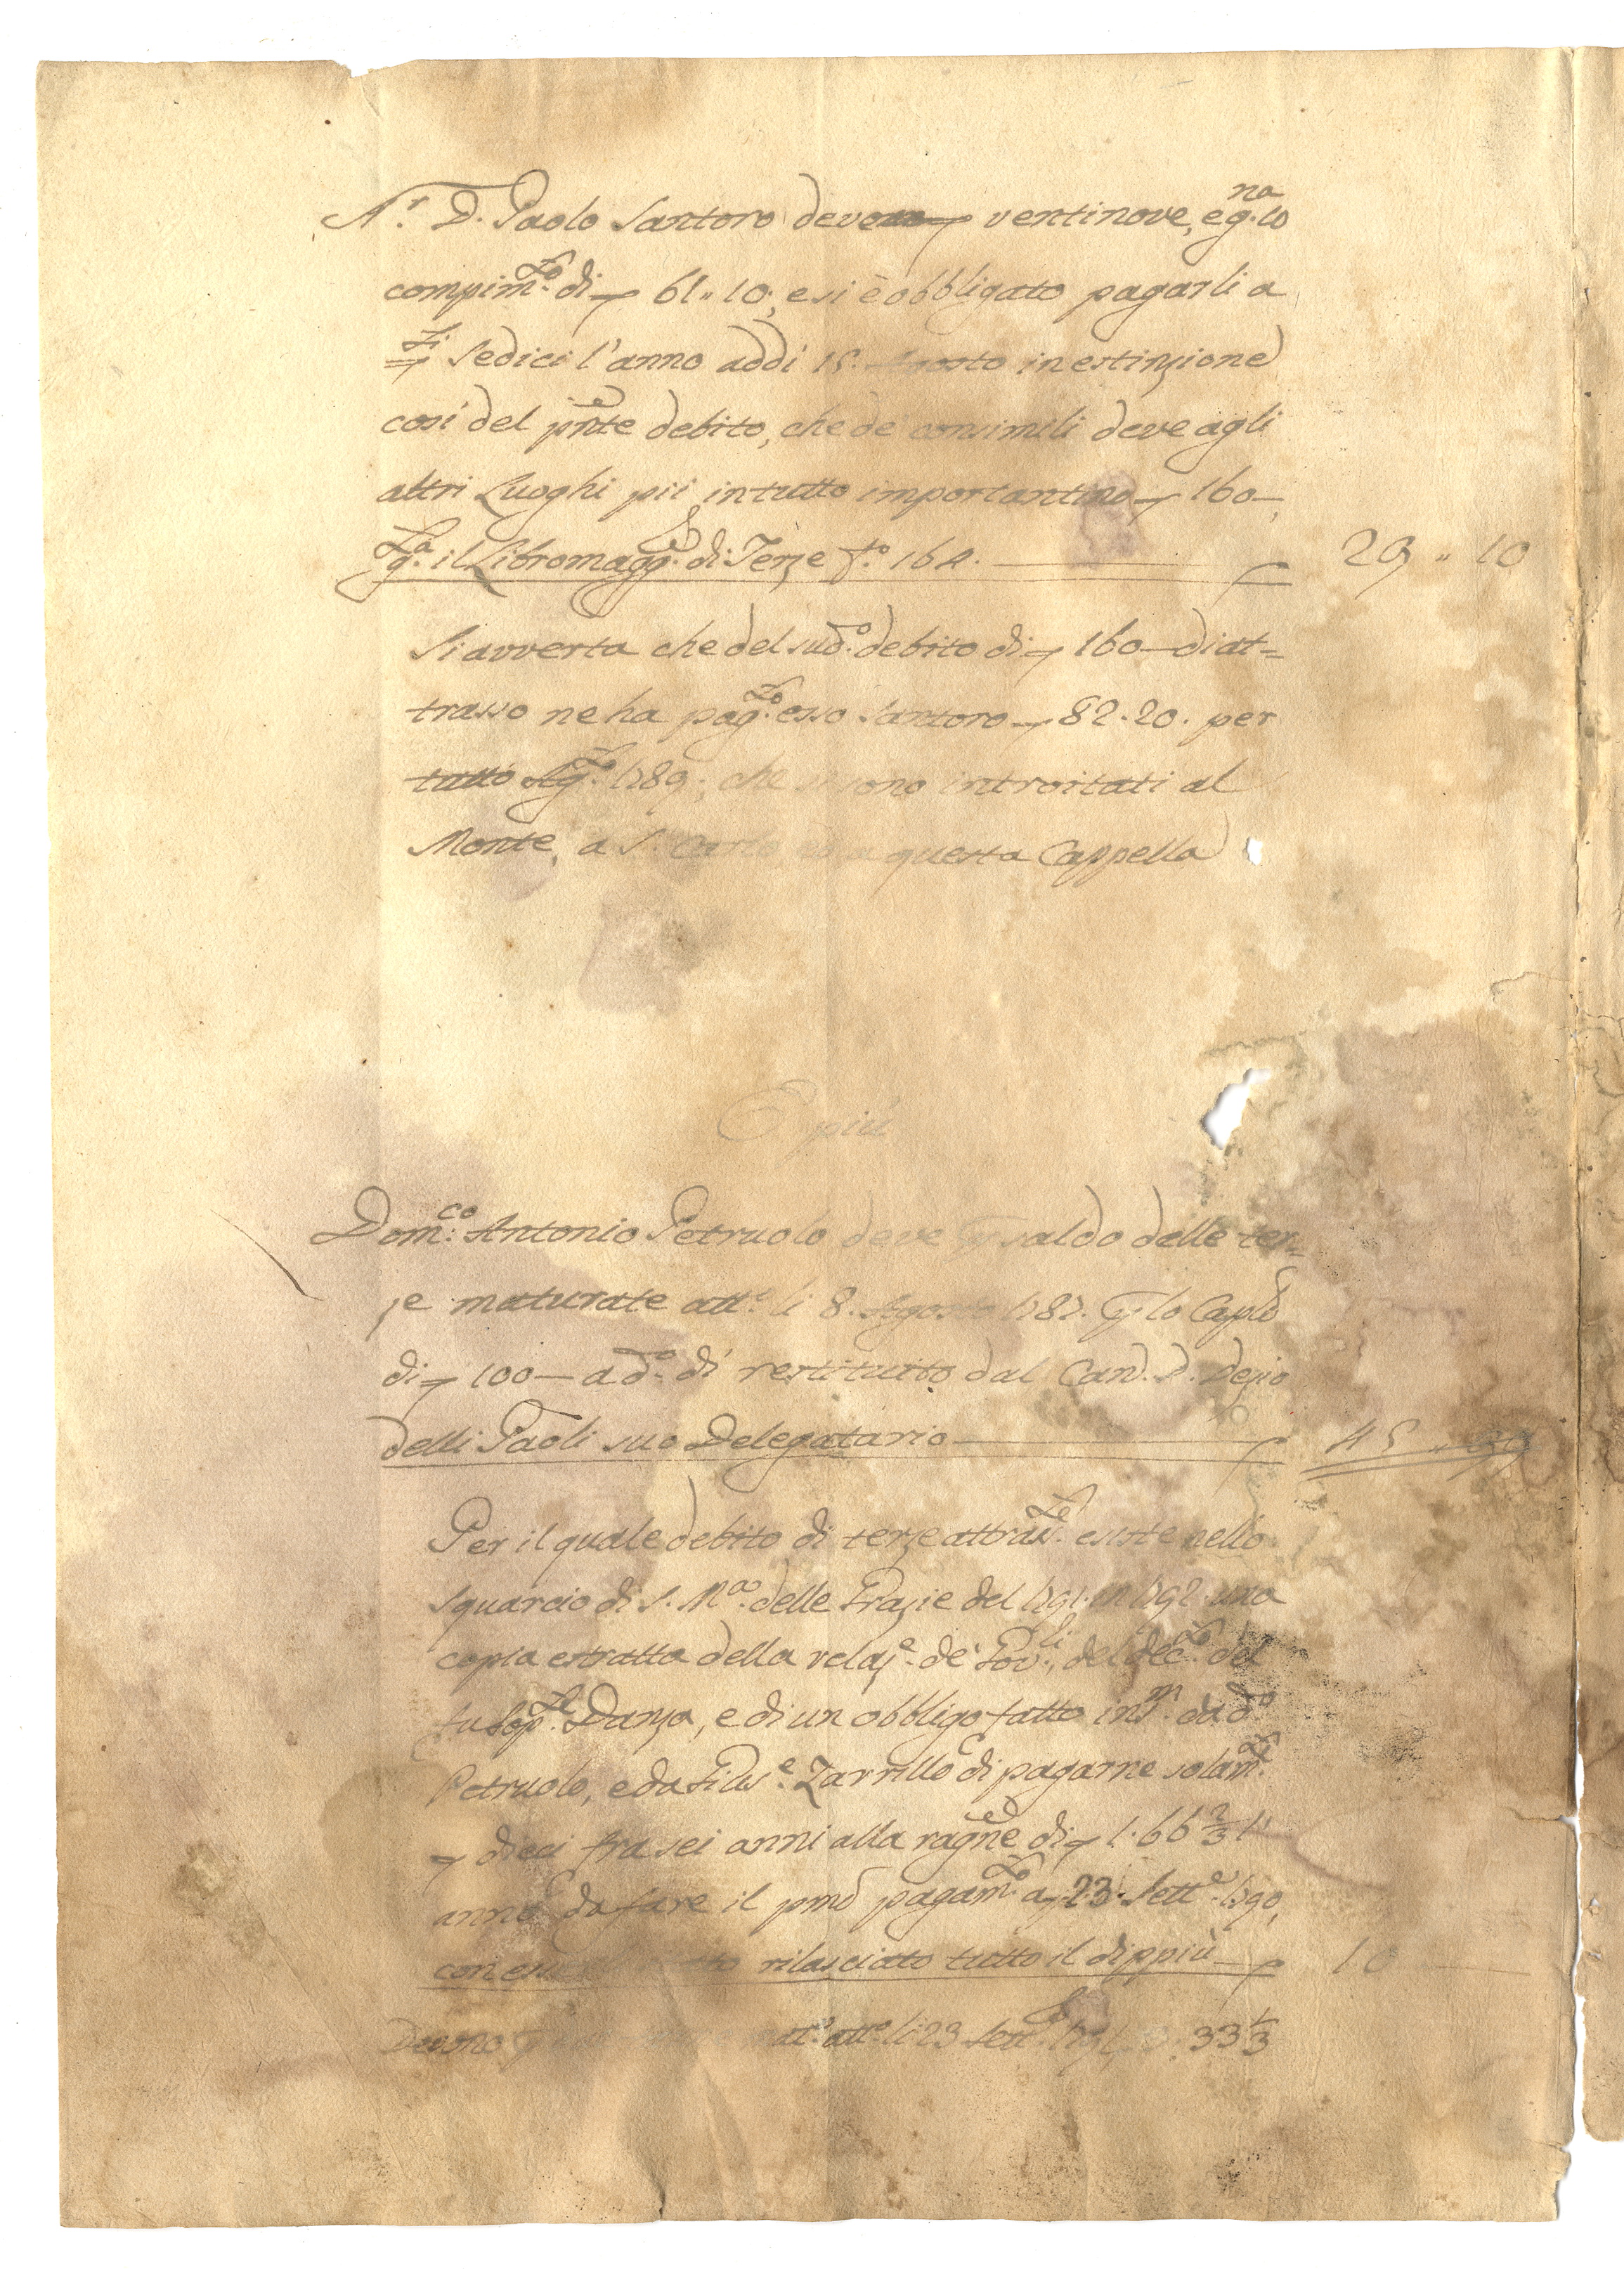 N.r D. Paolo Santoro deve ventinove, e g.na 10
compim.to di 61 " 10; e si è obbligato pagarli a
sedici l'anno addì 15. Agosto in estinzione
così del pñte debito, che de consimili deve agli
altri Luoghi pii in tutto importantino 160 —,
il Libro magg.e di Terze f.o 164. 29 " 10
Si avverta che del sud.o debito di 160 — di at=
trasso ne ha pag.to esso Santoro 82.20. per
tutto Ag.to 1789; che si sono introitati al
Monte, a S. Carlo, ed a questa Cappella
E più
Dom.co Antonio Petruolo deve saldo delle ter=
ze maturate att.o li 8. Agosto 1787. lo Caplē
di 100 — a d.o dì restituito dal Can. D. Dezio
delli Paoli suo Delegatario 45 " 99
Per il quale debito di terze attras.te esiste nello
squarcio di S. M.a delle Grazie del 1791. in 1792. una
copia estratta della relaz.e de' Gov.li, del dec.to del
fu Danza, e di un obbligo fatto in da d.o
Petruolo, e da Zarrillo di pagarne solam.te
dieci fra sei anni alla ragne di 1.66 2/3 l'
anno da fare il pmo pagam.to a 23. Sett.e 1790,
con rilasciato tutto il dippiù 10 —
Devono mat.e att.o li 23 Sett.e 1791 33 1/3